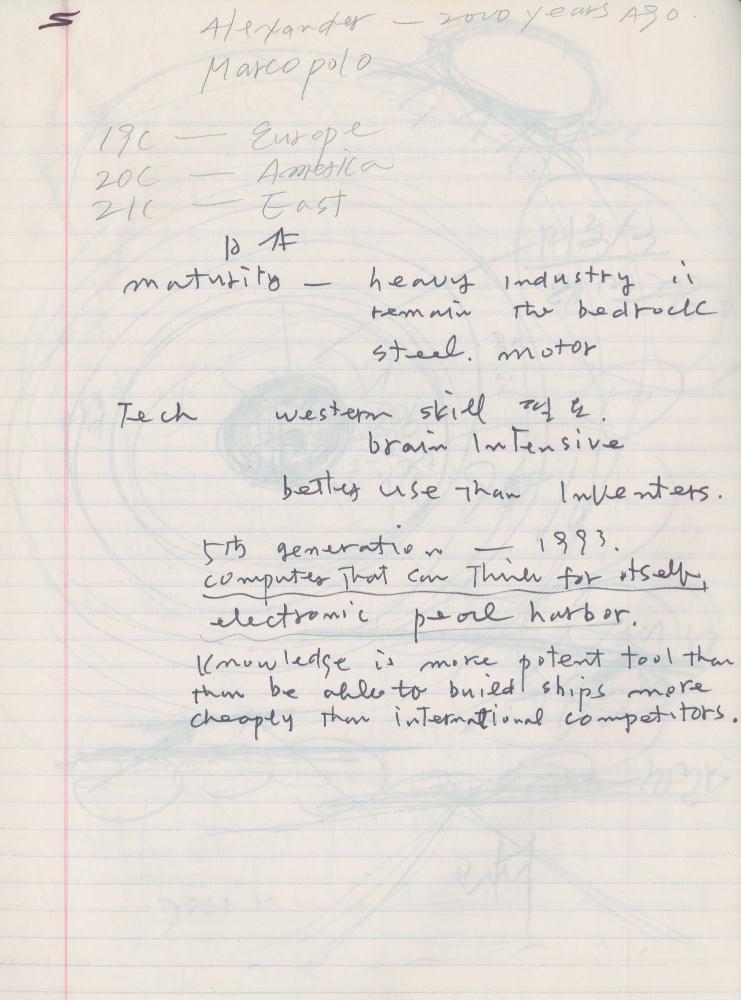 5
Alexander — 2000 years Ago.
Marcopolo
19C — Europe
20C — America
21C — East
maturity — heavy industry is
remain the bedrock
steel. motor
Tech western skill 필요.
brain Intensive
better use than Inventers.
5th generation — 1993.
computer That can Think for itself,
electronic pearl harbor.
Knowledge is more potent tool than
than be able to build ships more
cheaply than international competitors.